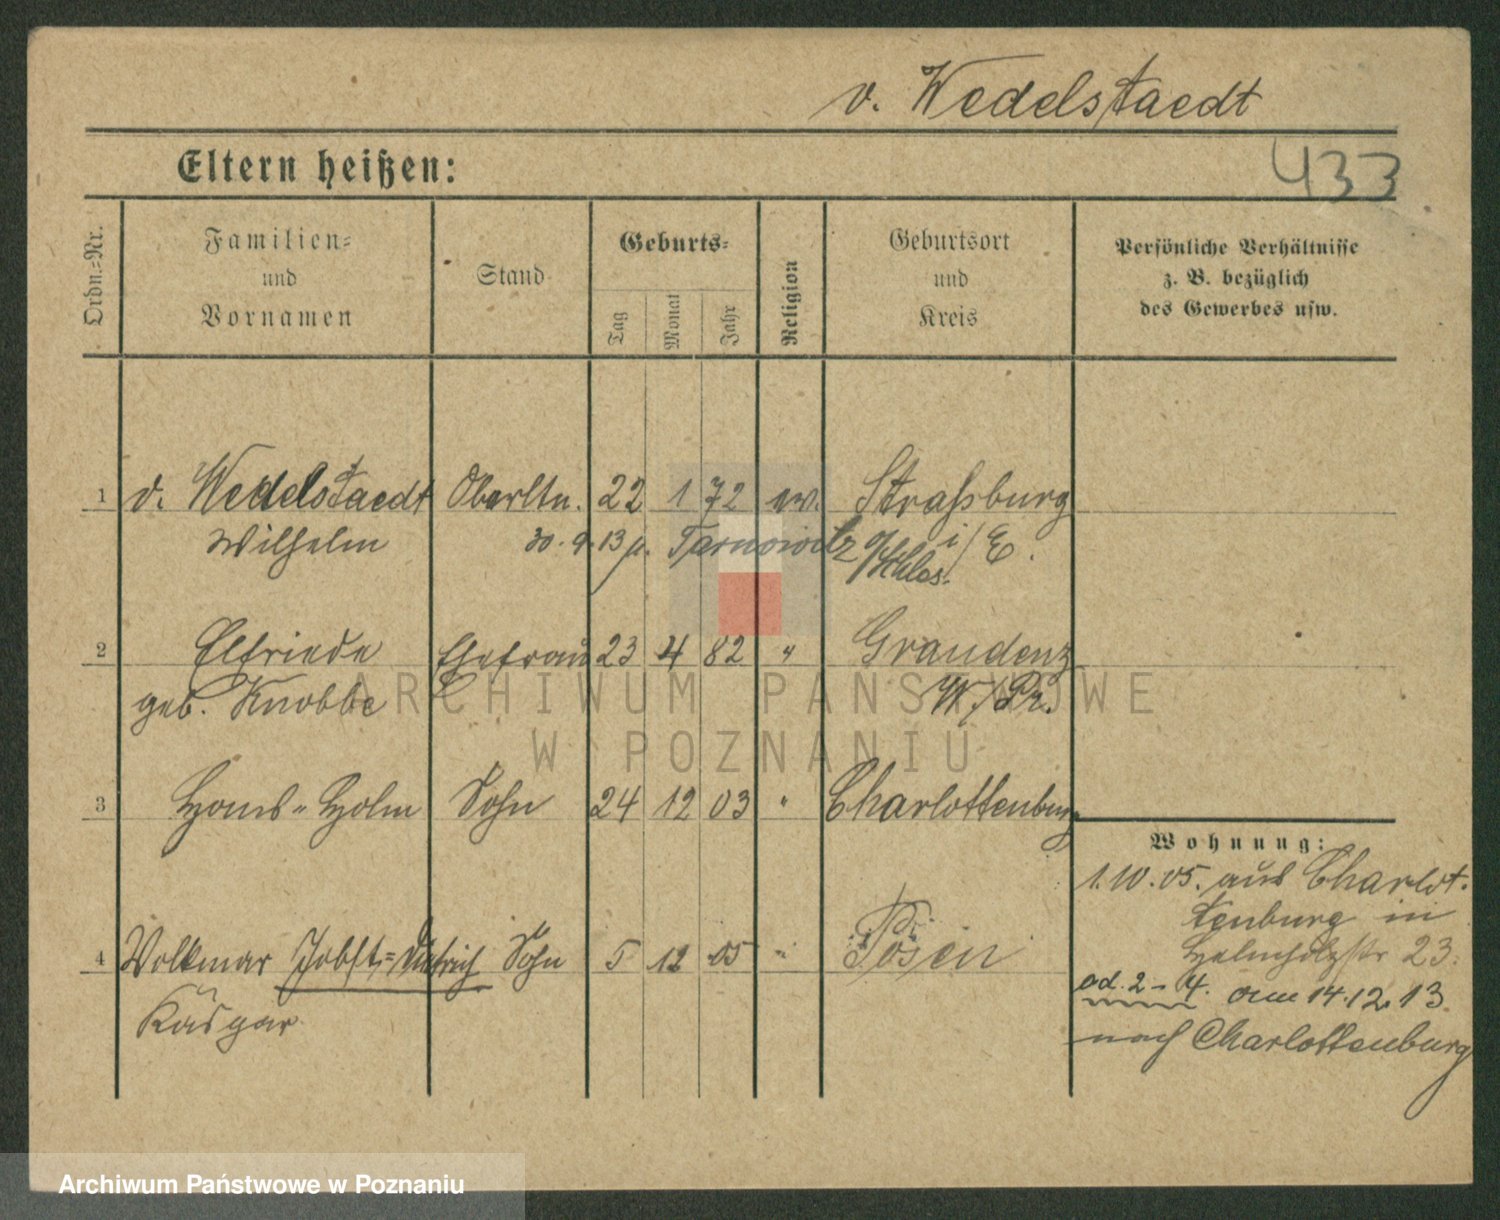 v. Wedelstaedt
Eltern heißen:
433
Ordn.=Nr.
Familien=
und
Vornamen
Stand
Geburts=
Tag
Monat
Jahr
Religion
Geburtsort
und
Kreis
Persönliche Verhältnisse
z. B. bezüglich
des Gewerbes usw.
1 v. Wedelstaedt Oberltn. 22 1 72 ev. Straßburg
Wilhelm 30. 9. 13 p. Tarnowitz i/E.
o/Schles.
2 Elfriede Ehefrau 23 4 82 " Graudenz
geb. Knobbe W./Pr.
3 Hans=Holm Sohn 24 12 03 " Charlottenburg
Wohnung:
1.10.05. aus Charlot.
tenburg in
Helmholzstr 23.
4 Volkmar Jobst=Dietrich Sohn 5 12 05 " Posen
Käsgar
ad. 2–4. am 14.12.13
nach Charlottenburg
ARCHIWUM PAŃSTWOWE
W POZNANIU
Archiwum Państwowe w Poznaniu